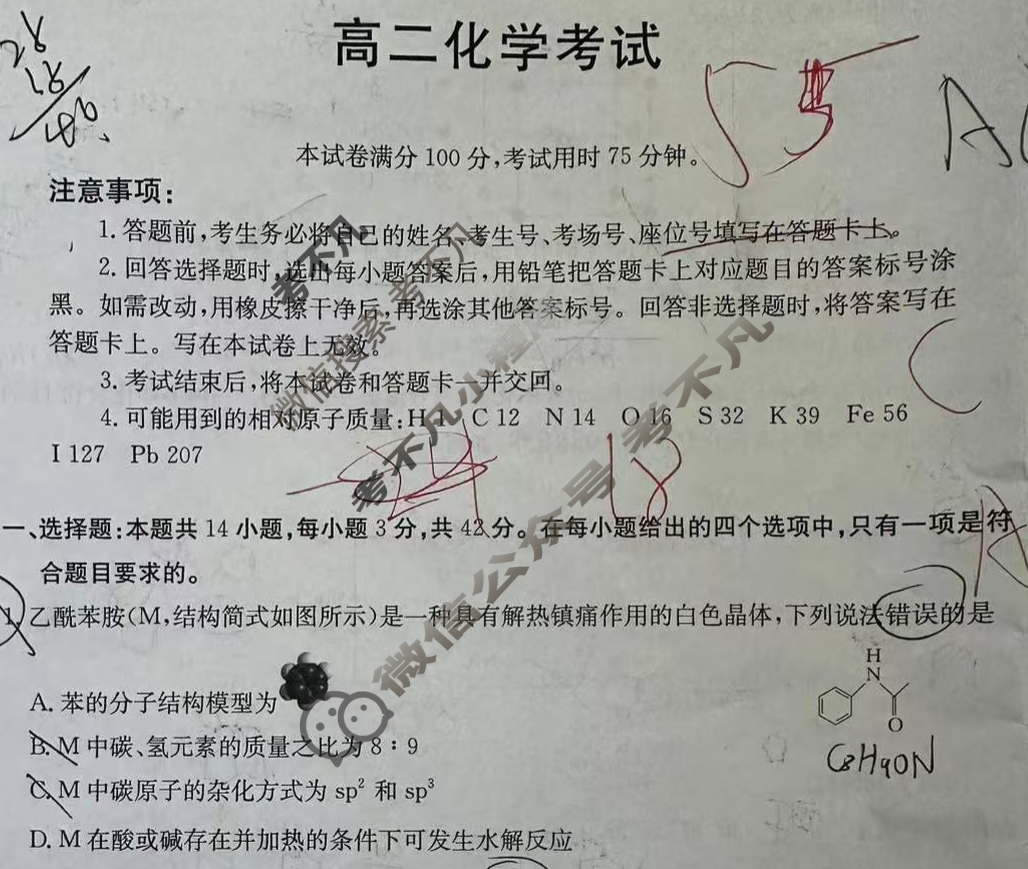 高二化学考试
28
18
46
55
本试卷满分 100 分,考试用时 75 分钟。
注意事项:
1. 答题前,考生务必将自己的姓名、考生号、考场号、座位号填写在答题卡上。
2. 回答选择题时,选出每小题答案后,用铅笔把答题卡上对应题目的答案标号涂
黑。如需改动,用橡皮擦干净后,再选涂其他答案标号。回答非选择题时,将答案写在
答题卡上。写在本试卷上无效。
3. 考试结束后,将本试卷和答题卡一并交回。
4. 可能用到的相对原子质量:H 1 C 12 N 14 O 16 S 32 K 39 Fe 56
I 127 Pb 207
18
一、选择题:本题共 14 小题,每小题 3 分,共 42 分。在每小题给出的四个选项中,只有一项是符
合题目要求的。
1. 乙酰苯胺(M,结构简式如图所示)是一种具有解热镇痛作用的白色晶体,下列说法错误的是
H
N
O
C8H9ON
A. 苯的分子结构模型为
B. M 中碳、氢元素的质量之比为 8∶9
C. M 中碳原子的杂化方式为 sp² 和 sp³
D. M 在酸或碱存在并加热的条件下可发生水解反应
考不凡
微信搜索 考不凡
考不凡小程序
微信公众号 考不凡